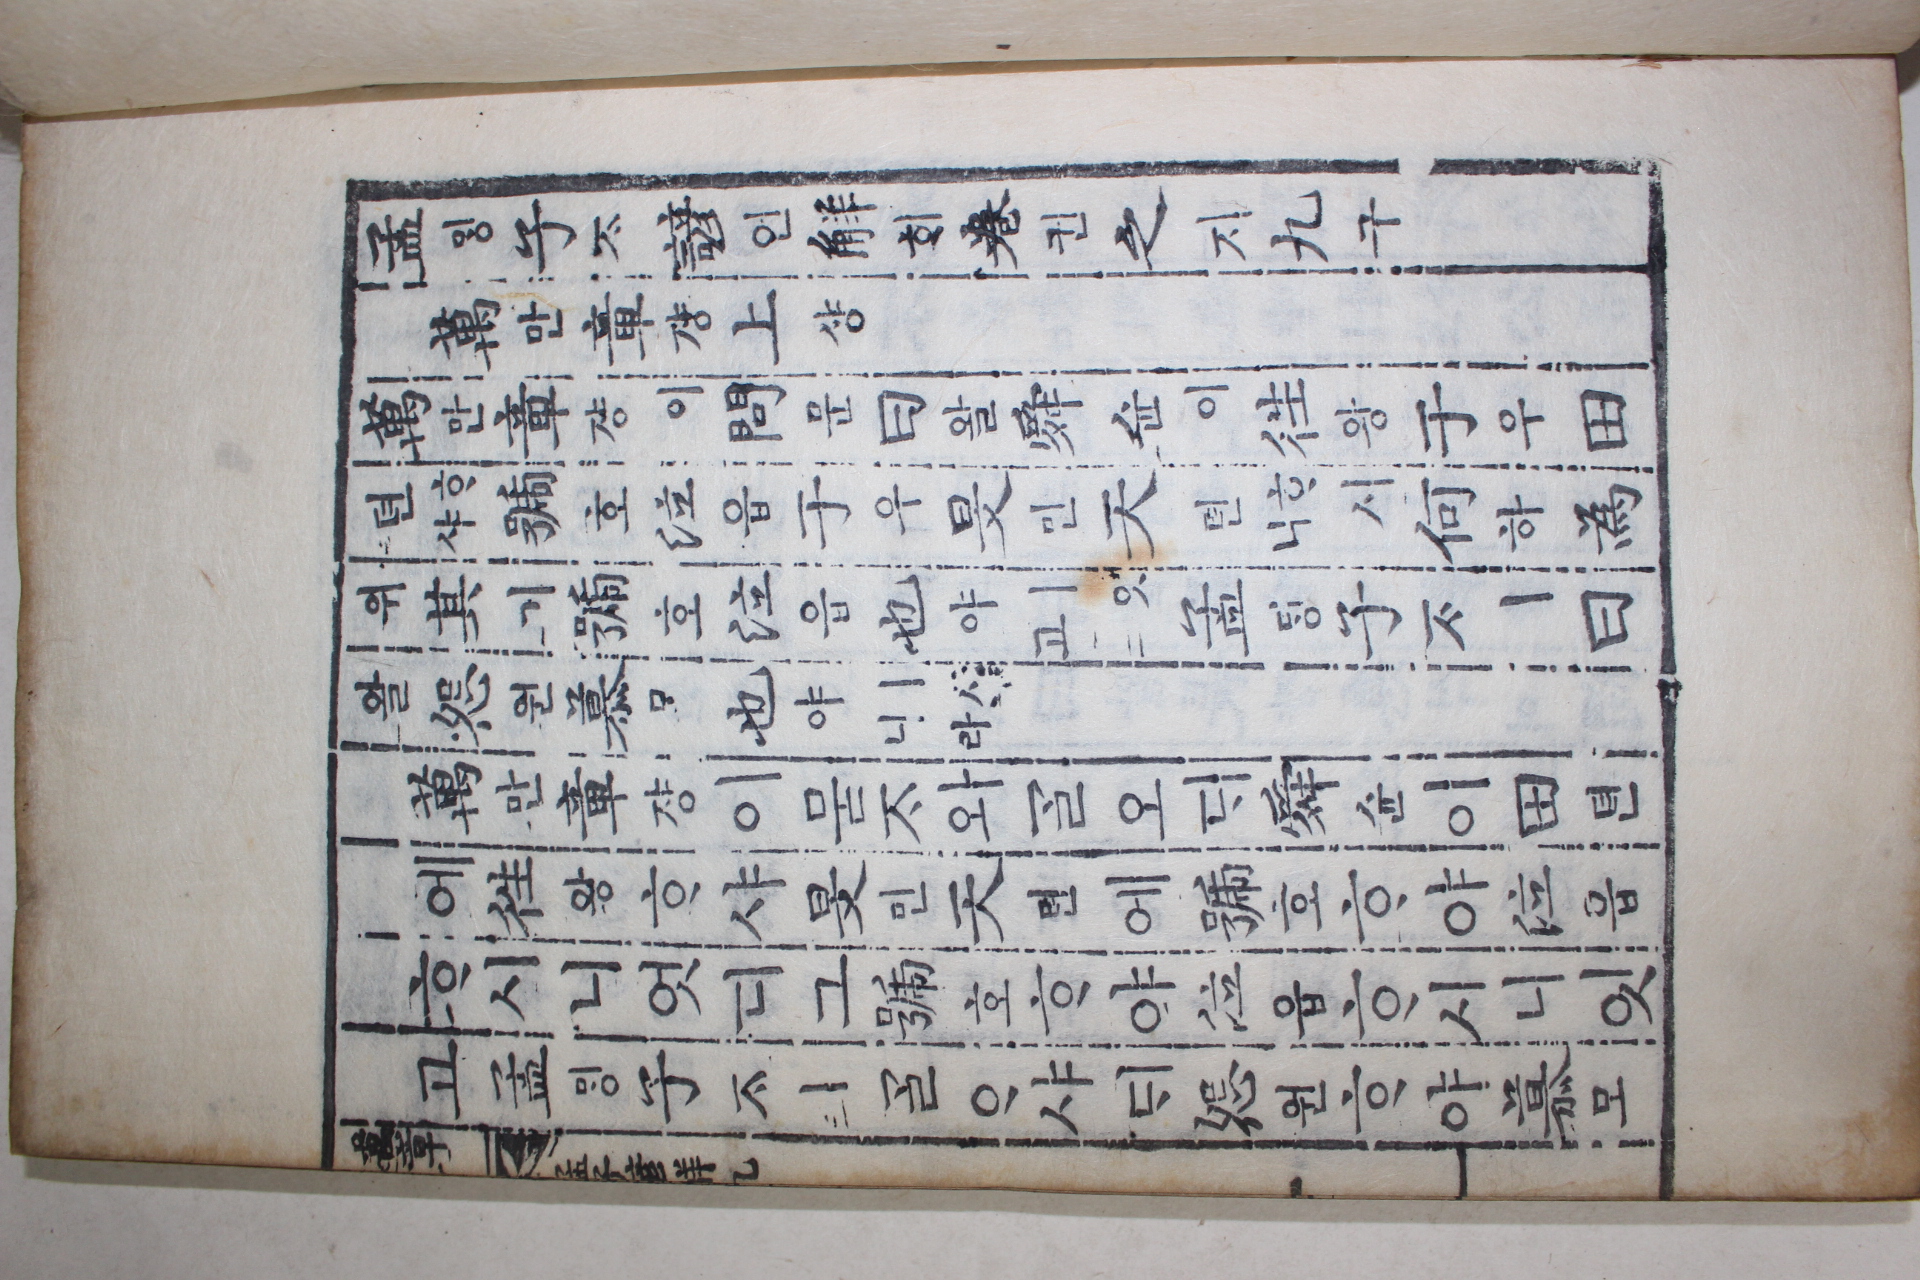 孟ᄆᆡᆼ子ᄌᆞ諺언解ᄒᆡ卷권之지九구
萬만章쟝上샹
萬만章쟝이問문曰왈舜슌이往왕于우田
뎐ᄒᆞ샤號호泣읍于우旻민天텬ᄒᆞ시니何하爲
위其기號호泣읍也야ㅣ니잇고孟ᄆᆡᆼ子ᄌᆞㅣ曰
왈怨원慕모也야ㅣ시니라
萬만章쟝이묻ᄌᆞ와ᄀᆞᆯ오ᄃᆡ舜슌이田뎐
에往왕ᄒᆞ샤旻민天텬에號호ᄒᆞ야泣읍
ᄒᆞ시니엇디그號호ᄒᆞ야泣읍ᄒᆞ시니잇
고孟ᄆᆡᆼ子ᄌᆞㅣᄀᆞᆯᄋᆞ샤ᄃᆡ怨원ᄒᆞ야慕모
萬章 孟子諺解九